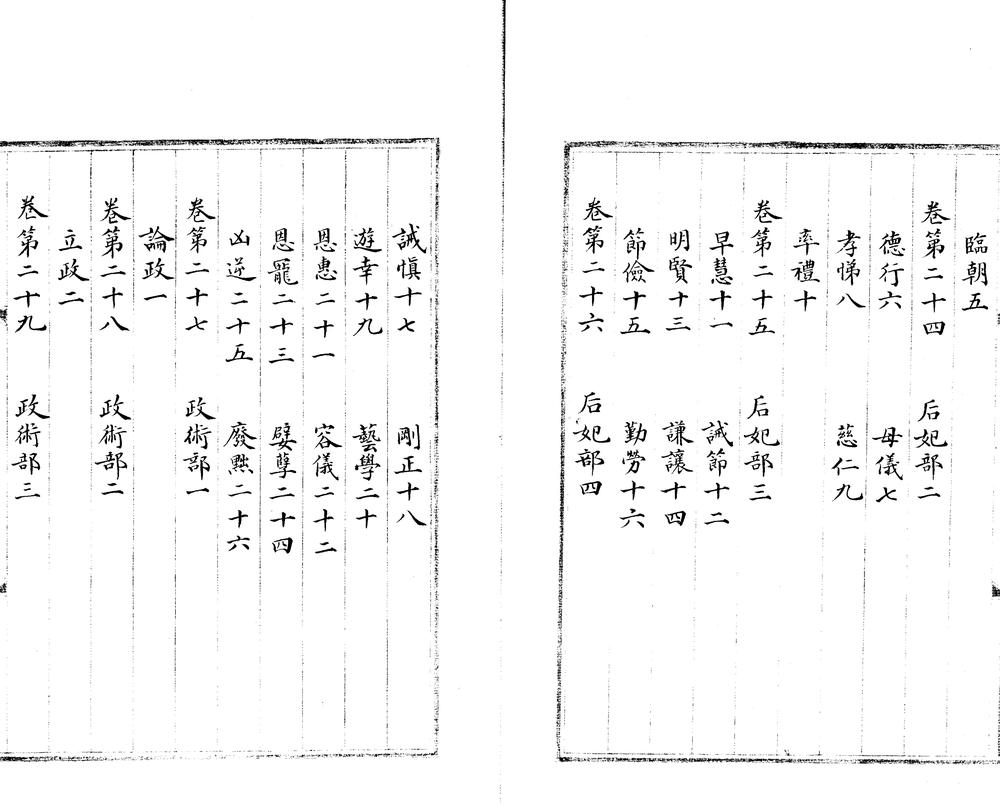 臨朝五
卷第二十四　后妃部二
德行六　母儀七
孝悌八　慈仁九
率禮十
卷第二十五　后妃部三
早慧十一　誡節十二
明賢十三　謙讓十四
節儉十五　勤勞十六
卷第二十六　后妃部四
誡愼十七　剛正十八
遊幸十九　藝學二十
恩惠二十一　容儀二十二
恩寵二十三　嬖孽二十四
凶逆二十五　廢黜二十六
卷第二十七　政術部一
論政一
卷第二十八　政術部二
立政二
卷第二十九　政術部三